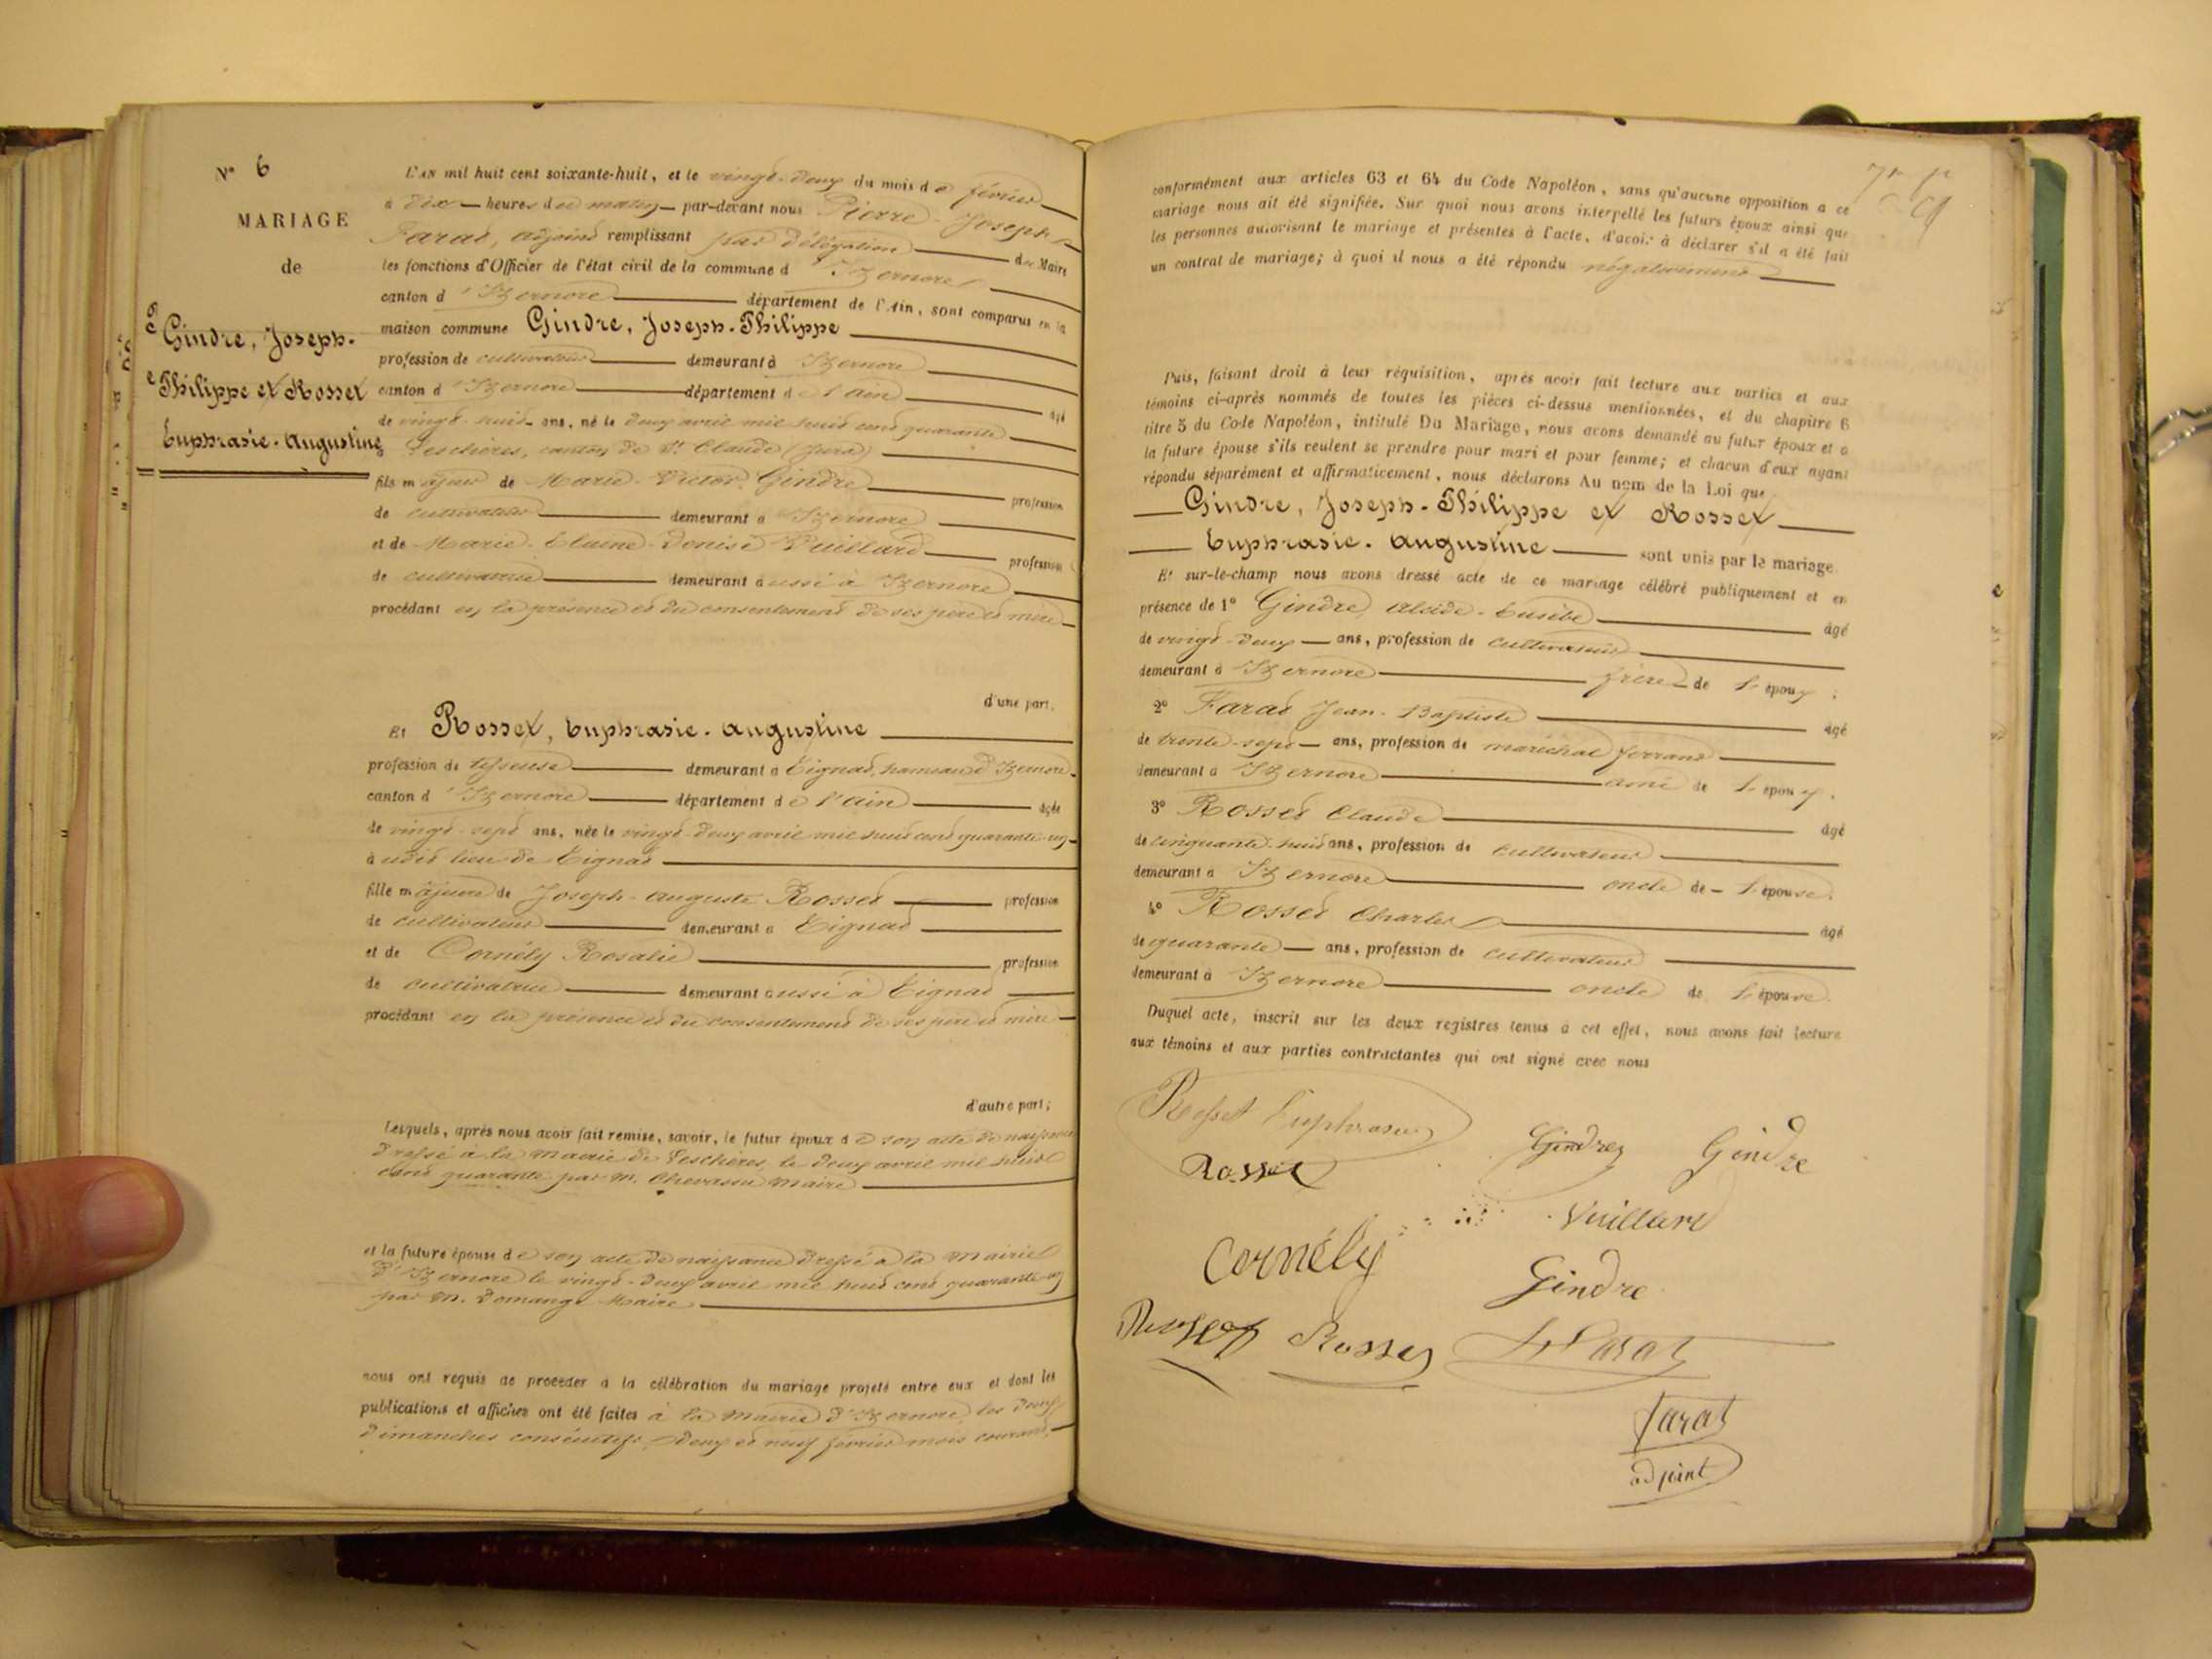 N° 6
MARIAGE
de
Gindre, Joseph-
Philippe et Rosset
Euphrasie-Augustine
L'AN mil huit cent soixante-huit, et le vingt-deux du mois de février
à dix heures du matin par-devant nous Pierre-Joseph
Farat, adjoint remplissant par délégation du Maire
les fonctions d'Officier de l'état civil de la commune d'Izernore
canton d'Izernore département de l'Ain, sont comparus en la
maison commune Gindre, Joseph-Philippe
profession de cultivateur demeurant à Izernore
canton d'Izernore département de l'ain âgé
de vingt-huit ans, né le deux avril mil huit cent quarante
à Leschères, canton de St Claude (Jura)
fils majeur de Marie-Victor Gindre profession
de cultivateur demeurant à Izernore
et de Marie-Claine-Denise Vuillard profession
de cultivatrice demeurant aussi à Izernore
procédant en la présence et du consentement de ses père et mère
d'une part,
Et Rosset, Euphrasie-Augustine
profession de tisseuse demeurant à Tignat, hameau d'Izernore
canton d'Izernore département de l'ain âgée
de vingt-sept ans, née le vingt-deux avril mil huit cent quarante-un
audit lieu de Tignat
fille majeure de Joseph-Auguste Rosset profession
de cultivateur demeurant à Tignat
et de Cornély Rosalie profession
de cultivatrice demeurant aussi à Tignat
procédant en la présence et du consentement de ses père et mère
d'autre part;
Lesquels, après nous avoir fait remise, savoir, le futur époux de son acte de naissance
dressé à la mairie de Leschères, le deux avril mil huit
cent quarante par M. Chevassu Maire
et la future épouse de son acte de naissance dressé à la mairie
d'Izernore le vingt-deux avril mil huit cent quarante-un
par M. Domange Maire
nous ont requis de procéder à la célébration du mariage projeté entre eux et dont les
publications et affiches ont été faites à la mairie d'Izernore, les deux
dimanches consécutifs, deux et neuf février mois courant,
conformément aux articles 63 et 64 du Code Napoléon, sans qu'aucune opposition à ce
mariage nous ait été signifiée. Sur quoi nous avons interpellé les futurs époux ainsi que
les personnes autorisant le mariage et présentes à l'acte, d'avoir à déclarer s'il a été fait
un contrat de mariage; à quoi il nous a été répondu négativement
Puis, faisant droit à leur réquisition, après avoir fait lecture aux parties et aux
témoins ci-après nommés de toutes les pièces ci-dessus mentionnées, et du chapitre 6
titre 5 du Code Napoléon, intitulé Du Mariage, nous avons demandé au futur époux et à
la future épouse s'ils veulent se prendre pour mari et pour femme; et chacun d'eux ayant
répondu séparément et affirmativement, nous déclarons Au nom de la Loi que
Gindre, Joseph-Philippe et Rosset
Euphrasie-Augustine sont unis par le mariage.
Et sur-le-champ nous avons dressé acte de ce mariage célébré publiquement et en
présence de 1° Gindre Alcide-Eusèbe âgé
de vingt-deux ans, profession de cultivateur
demeurant à Izernore frère de l'époux;
2° Farat Jean-Baptiste âgé
de trente-sept ans, profession de maréchal ferrant
demeurant à Izernore ami de l'époux.
3° Rosset Claude âgé
de cinquante-huit ans, profession de cultivateur
demeurant à Izernore oncle de l'épouse.
4° Rosset Charles âgé
de quarante ans, profession de cultivateur
demeurant à Izernore oncle de l'épouse.
Duquel acte, inscrit sur les deux registres tenus à cet effet, nous avons fait lecture
aux témoins et aux parties contractantes qui ont signé avec nous
Rosset Euphrasie
Gindre Gindre
Rosset
Vuillard
Cornély
Gindre
Rosset Rosset Farat
Farat
adjoint